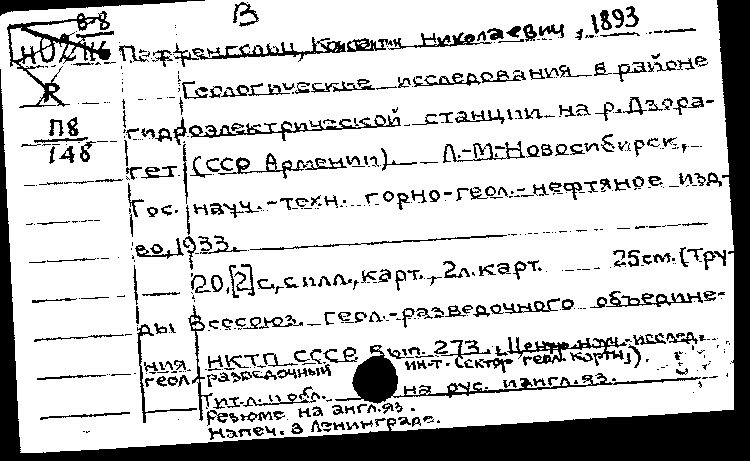 В
в-8
Паффенгольц, Константин Николаевич, 1893
Геологические исследования в районе
П8
148
гидроэлектрической станции на р. Дзора-
гет (ССР Армении). Л.-М.-Новосибирск,
Гос. науч.-техн. горно-геол.-нефтяное изд-
во, 1933.
20,[2]с, с илл., карт., 2л. карт. 25см. (Тру-
ды Всесоюз. геол.-разведочного объедине-
ния НКТП СССР Вып. 273., Центр. науч.-исслед.
геол.-разведочный ин-т. (сектор геол. карты).
Тит.л. и обл. на рус. и англ.яз.
Резюме на англ.яз.
Напеч. в Ленинграде.